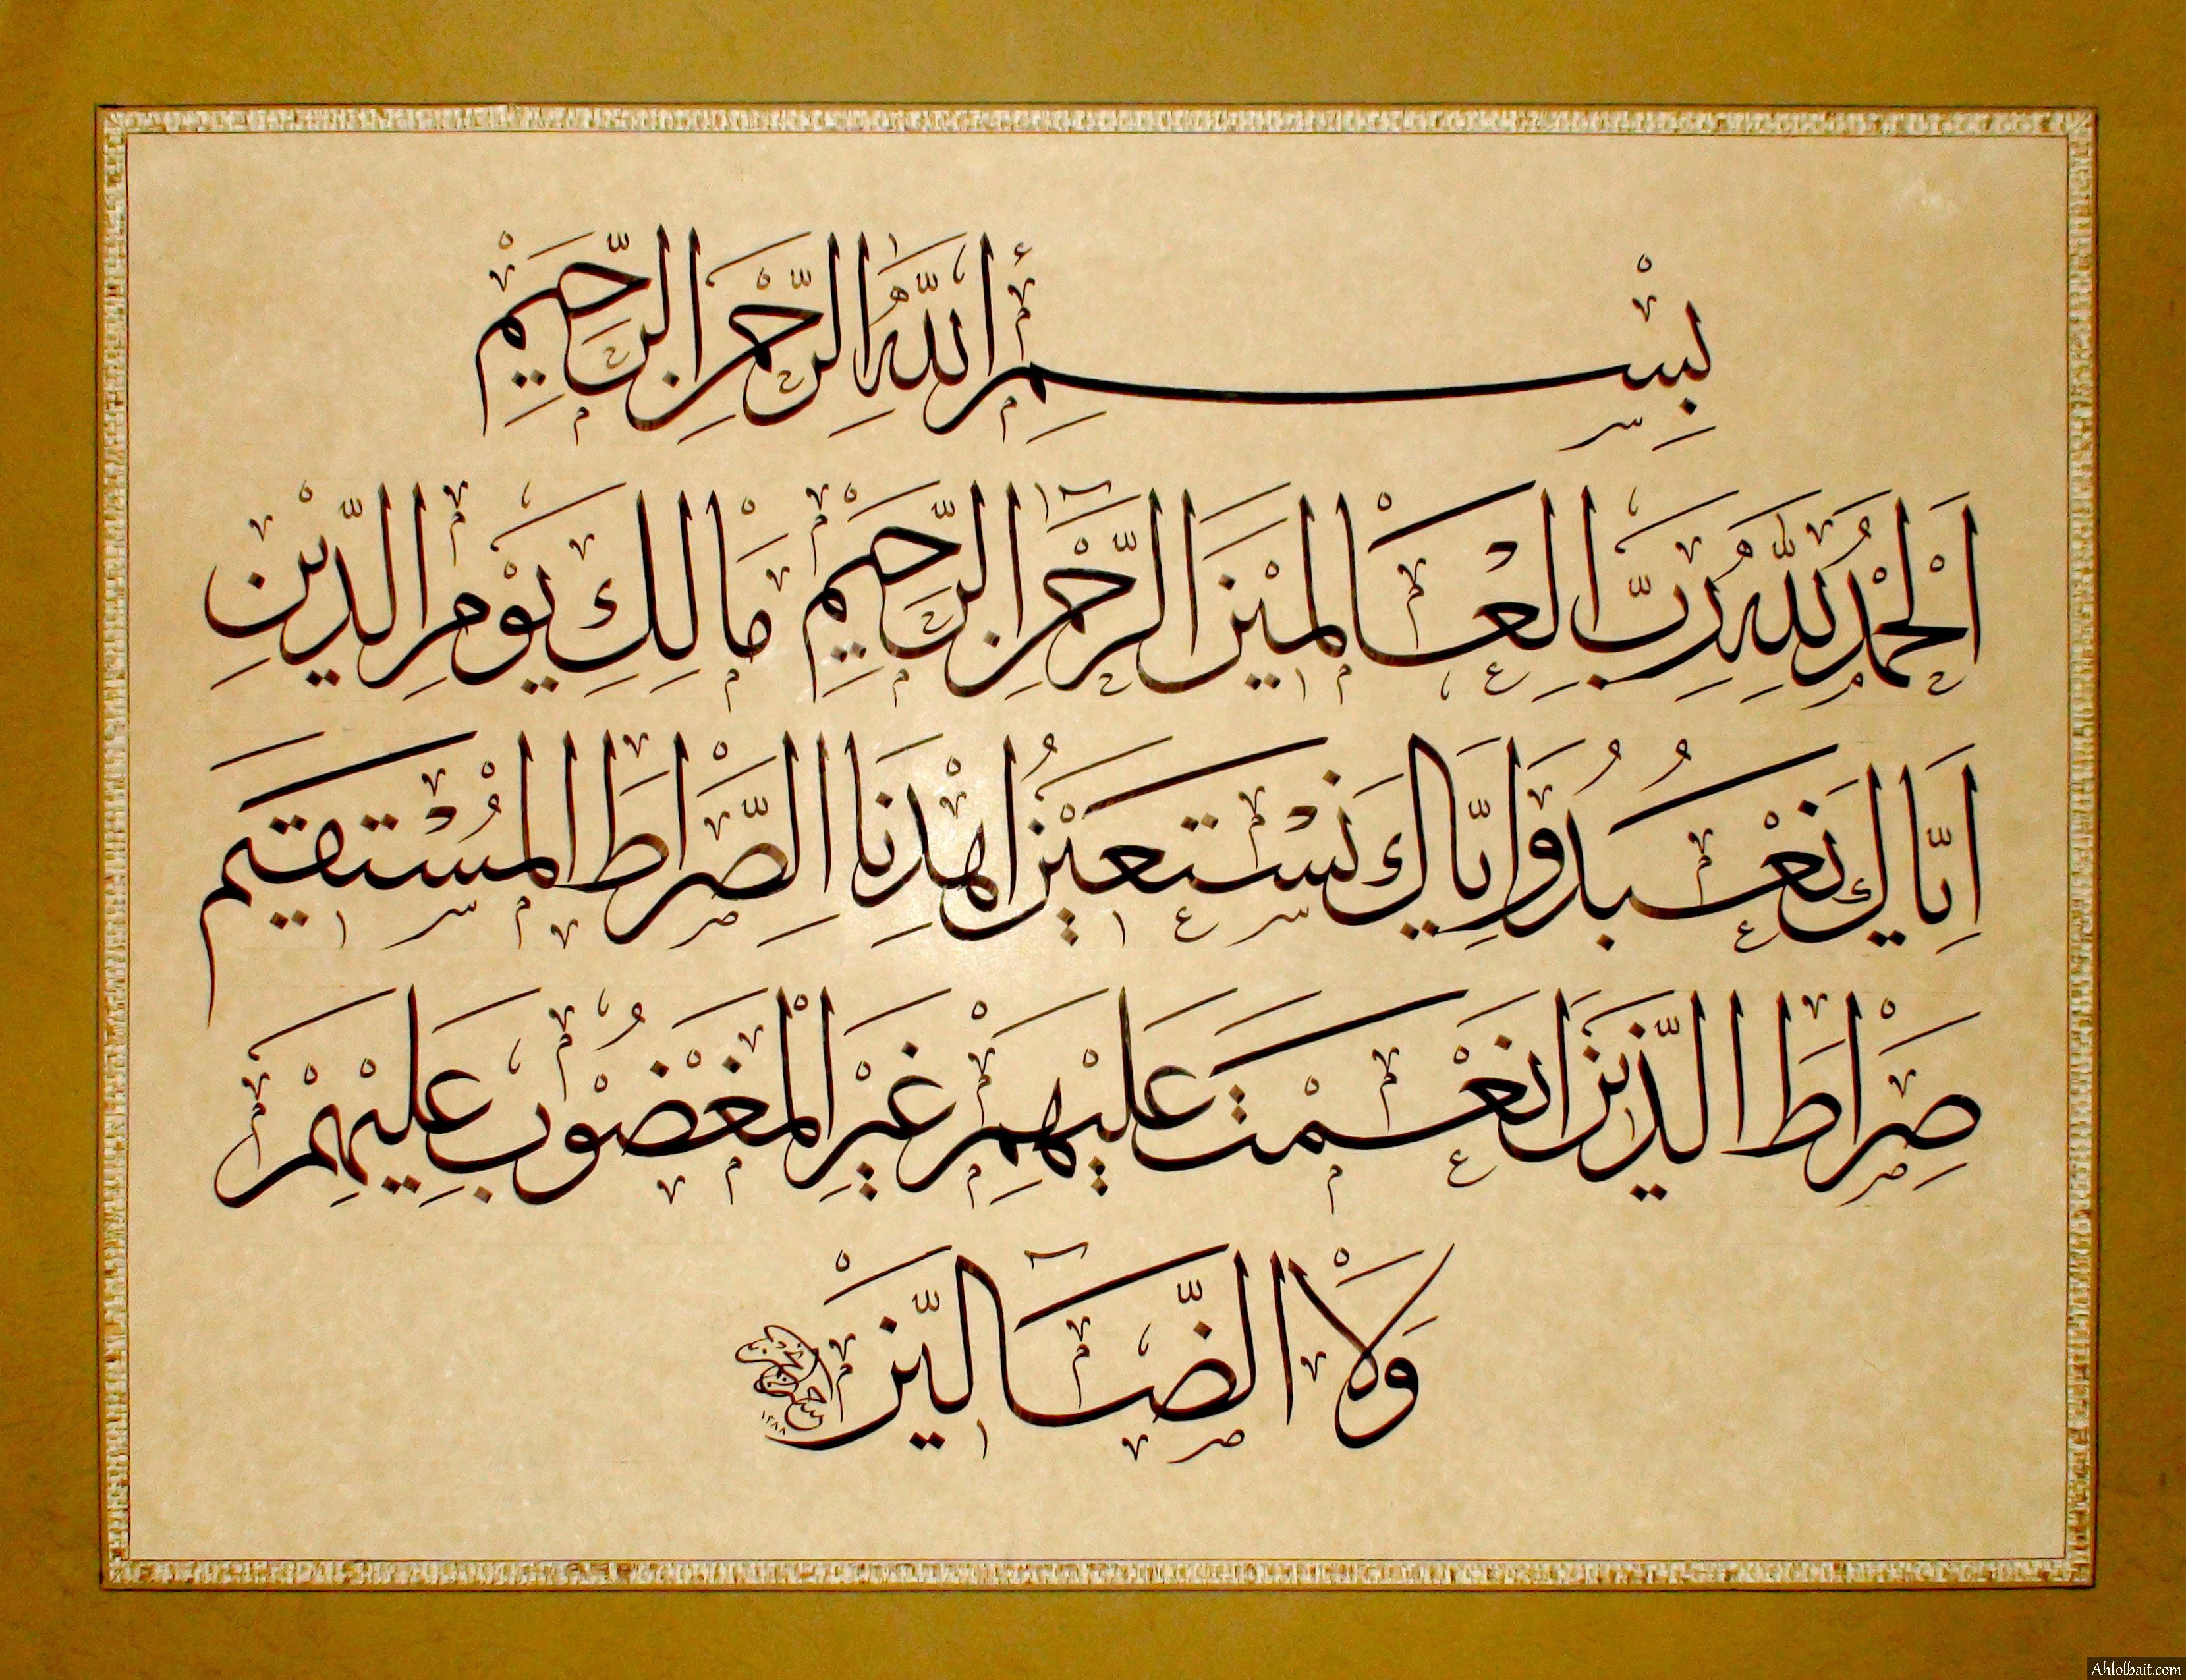 بِسْمِ اللّٰهِ الرَّحْمٰنِ الرَّحِيْمِ
اَلْحَمْدُ لِلّٰهِ رَبِّ الْعَالَمِيْنَ الرَّحْمٰنِ الرَّحِيْمِ مَالِكِ يَوْمِ الدِّيْنِ
اِيَّاكَ نَعْبُدُ وَاِيَّاكَ نَسْتَعِيْنُ اهْدِنَا الصِّرَاطَ الْمُسْتَقِيْمَ
صِرَاطَ الَّذِيْنَ اَنْعَمْتَ عَلَيْهِمْ غَيْرِ الْمَغْضُوْبِ عَلَيْهِمْ
وَلَا الضَّالِّيْنَ
Ahlolbait.com